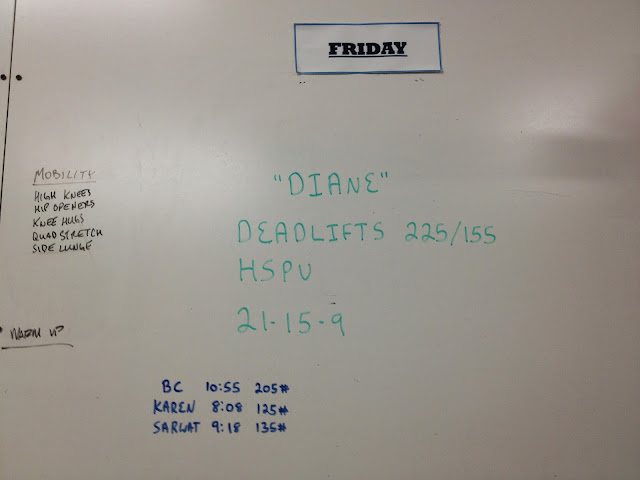 FRIDAY
MOBILITY
HIGH KNEES
HIP OPENERS
KNEE HUGS
QUAD STRETCH
SIDE LUNGE
WARM UP
"DIANE"
DEADLIFTS 225/155
HSPU
21-15-9
BC 10:55 205#
KAREN 8:08 125#
SARWAT 9:18 135#